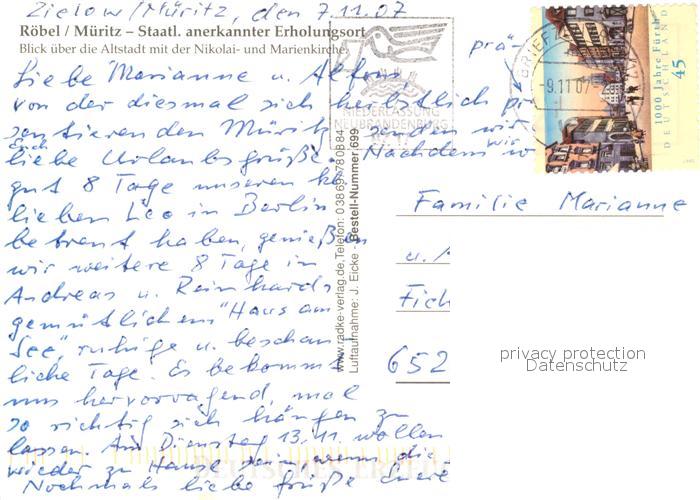 Zielow/Müritz, den 7.11.07
Röbel / Müritz – Staatl. anerkannter Erholungsort
Blick über die Altstadt mit der Nikolai- und Marienkirche
Liebe Marianne u. Alfons
von der diesmal sich herbstlich prä-
sentieren den Müritz senden wir
Euch liebe Urlaubsgrüße. Nachdem wir
gut 8 Tage unseren
lieben Leo in Berlin
betreut haben, genießen
wir weitere 8 Tage in
Andreas u. Reinhards
gemütlichem "Haus am
See", ruhige u. beschau-
liche Tage. Es bekommt
uns hervorragend, mal
so richtig sich hängen zu
lassen. Am Dienstag 13.11. wollen
wieder zu Hause sein wenn die
Nochmals liebe Grüße Eure
NIEDERLASSUNG
NEUBRANDENBURG
www.radke-verlag.de, Telefon: 03869-780884
Luftaufnahme: J. Eicke Bestell-Nummer 699
BRIEFZ
-9.11.07-2
1000 Jahre Fürth
DEUTSCHLAND
45
Familie Marianne
u. A
Fich
652
privacy protection
Datenschutz